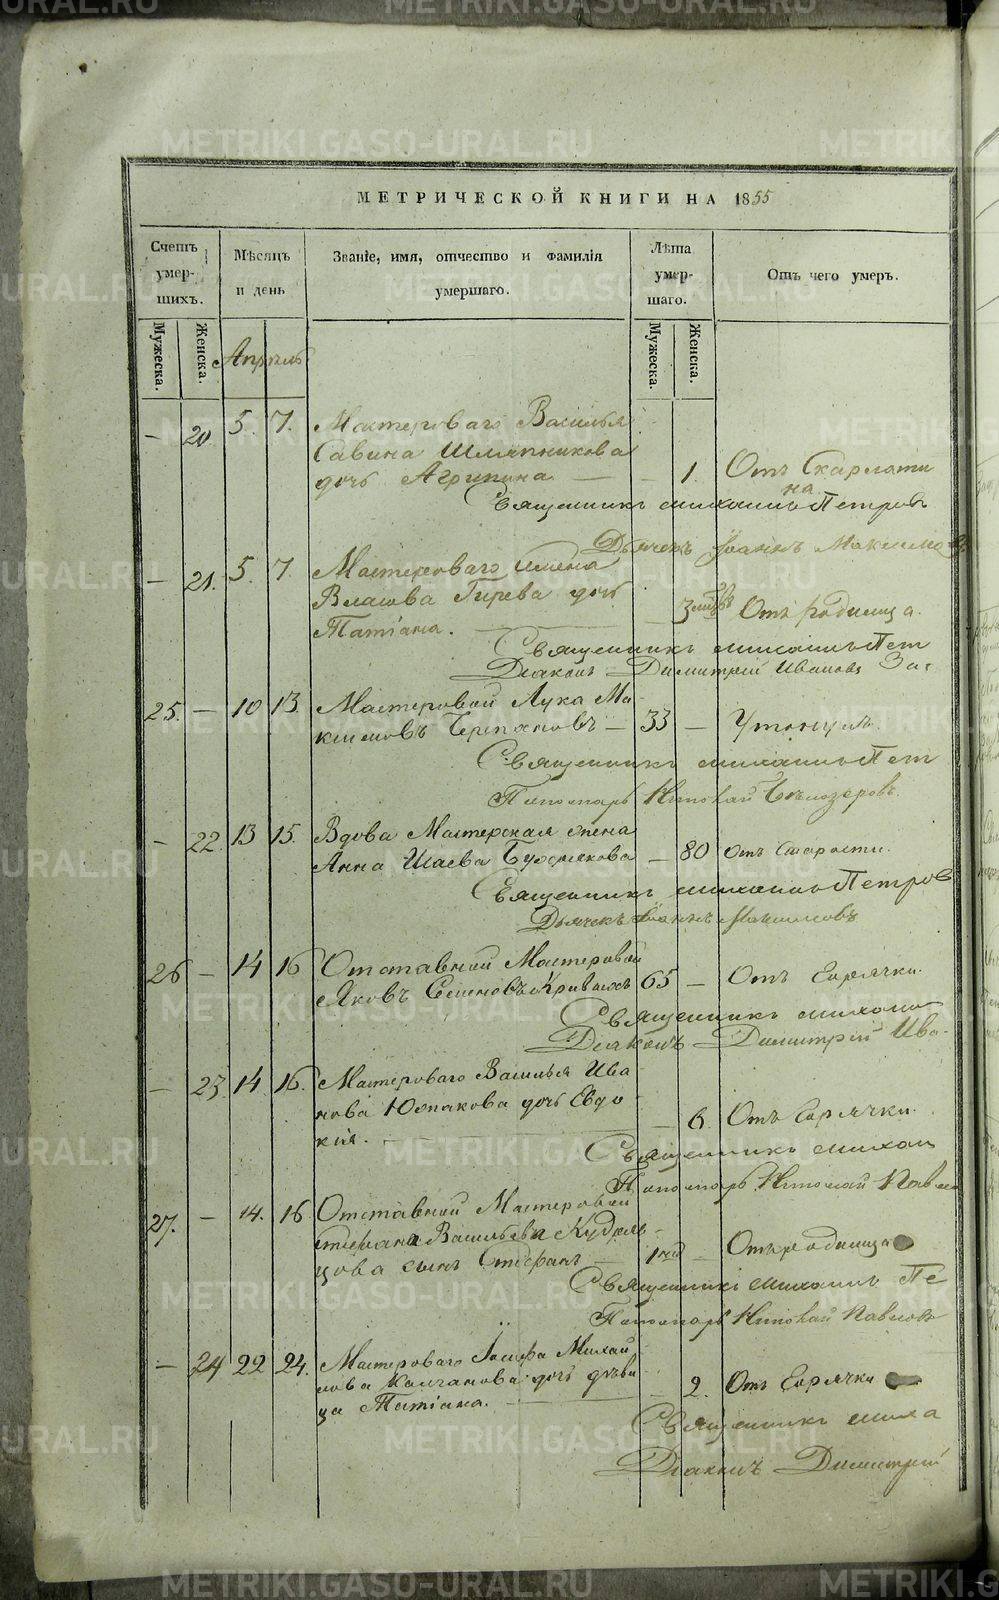 МЕТРИЧЕСКОЙ КНИГИ НА 1855
Счетъ умершихъ.
Мѣсяцъ и день
Званіе, имя, отчество и фамилія умершаго.
Лѣта умершаго.
Отъ чего умеръ.
Мужеска. Женска. Мужеска. Женска.
Апрѣль
— 20 5. 7. Мастероваго Василья
Савина Шляпникова
дочь Агрипина — — 1. Отъ Скарлати
на
Священникъ Михаилъ Петров
Дьячекъ Іоаннъ Максимов
— 21. 5. 7. Мастероваго
Власова Гирева дочь
Татіана. — 3 Отъ родимца.
Священникъ Михаилъ Пет
Діаконъ Димитрій Ивановъ
25. — 10 13. Мастеровой Лука Ма
ксимовъ — 33 — Утонулъ.
Священникъ Михаилъ Пет
Пономарь Николай Бѣлозеровъ.
— 22. 13 15. Вдова Мастерская жена
Анна Исаева — 80 отъ Старости.
Священникъ Михаилъ Петров
Дьячекъ Іоаннъ Максимовъ
26 — 14 16 Отставной Мастеровой
Яковъ Семеновъ Кривыхъ 65 — Отъ Горячки.
Священникъ Михаи
Діаконъ Димитрій Ива
— 23 14. 16. Мастероваго Василья Ива
нова Юшкова дочь Евдо
кія. — 6. Отъ Горячки.
Священникъ Михаи
Пономарь Николай Павло
27. — 14. 16 Отставной Мастеровой
Стефана Васильева Кудрявцова сынъ Стефанъ — 1 — Отъ родимца
Священникъ Михаилъ Пе
Пономарь Николай Павловъ
— 24 22 24. Мастероваго Іосифа Михай
лова Колчанова дочь дѣви
ца Татіана. — 2. Отъ Горячки
Священникъ Миха
Діаконъ Димитрій
METRIKI.GASO-URAL.RU